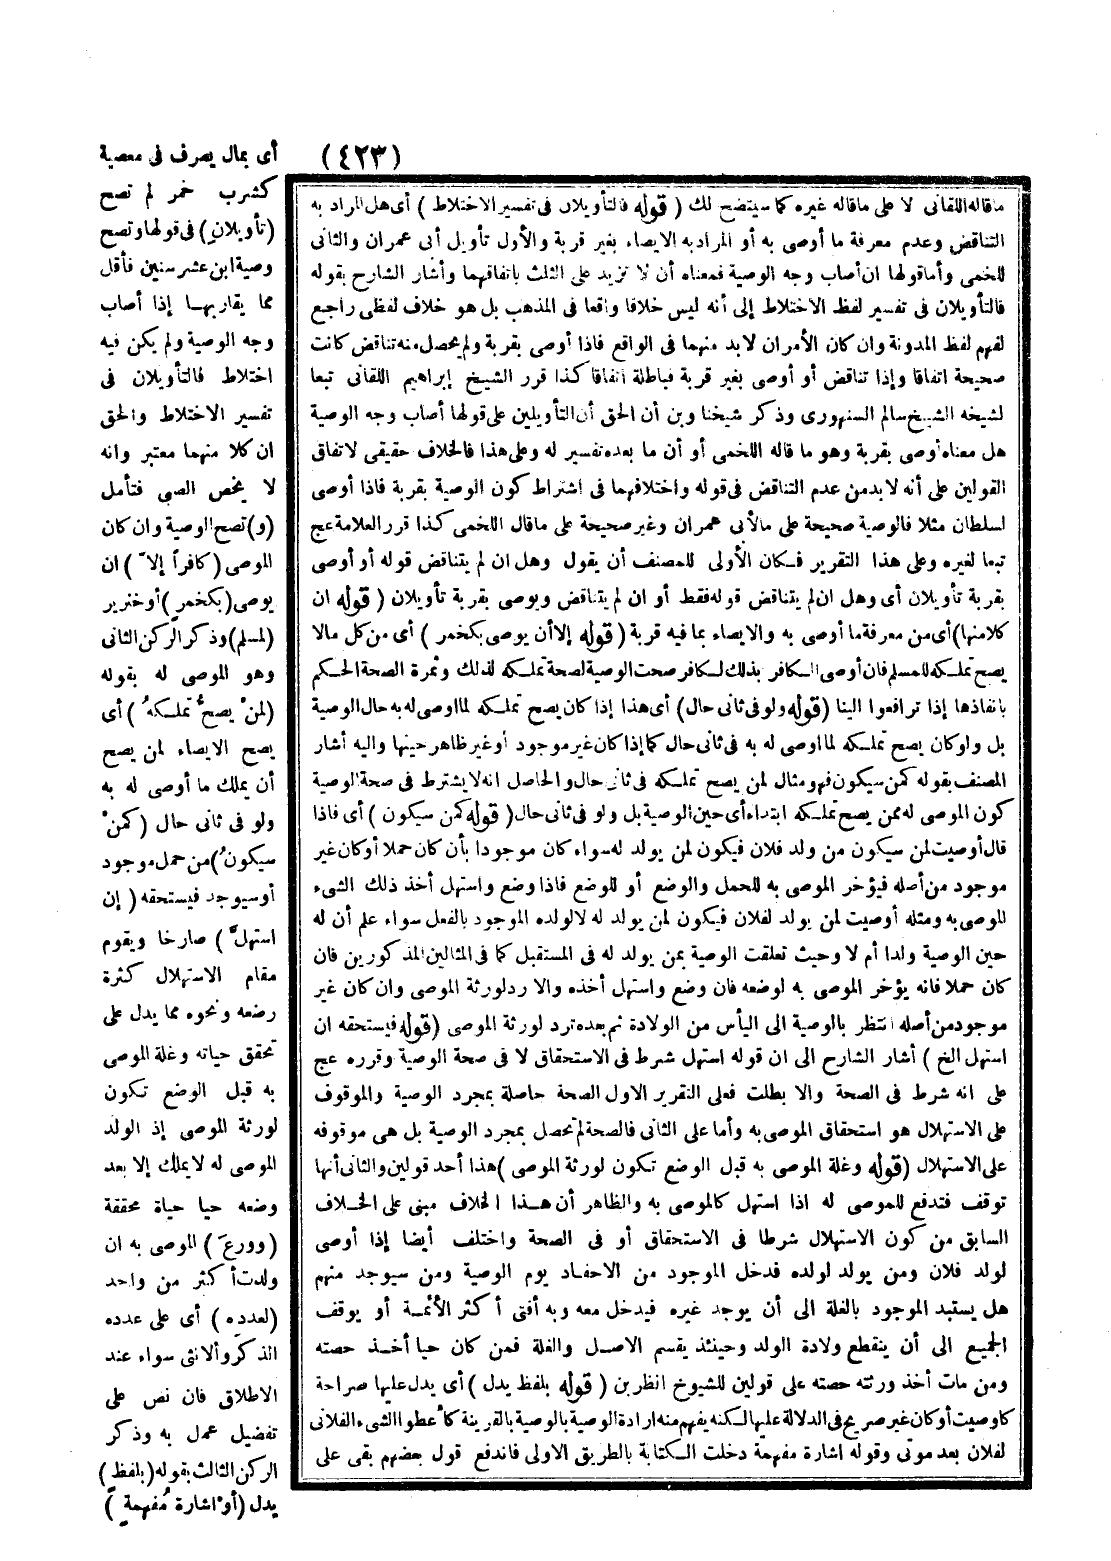 (٤٢٣)
أى بمال يصرف فى معصية
كشرب خمر لم تصح
(تأويلان) فى قولها وتصح
وصية ابن عشر سنين فأقل
مما يقاربها إذا أصاب
وجه الوصية ولم يكن فيه
اختلاط فالتأويلان فى
تفسير الاختلاط والحق
ان كلا منهما معتبر وانه
لا يخص الصبى فتأمل
(و) تصح الوصية وان كان
الموصى (كافراً إلا) ان
يوصى (بكخمر) أو خنزير
(لمسلم) وذكر الركن الثانى
وهو الموصى له بقوله
(لمنْ يصحُّ تملكهُ) أى
يصح الايصاء لمن يصح
أن يملك ما أوصى له به
ولو فى ثانى حال (كمنْ
سيكونُ) من حمل موجود
أو سيوجد فيستحقه (إن
استهلَّ) صارخا ويقوم
مقام الاستهلال كثرة
رضعه ونحوه مما يدل على
تحقق حياته وغلة الموصى
به قبل الوضع تكون
لورثة الموصى إذ الولد
الموصى له لا يملك إلا بعد
وضعه حيا حياة محققة
(ووزعَ) الموصى به ان
ولدت أكثر من واحد
(لعدده) أى على عدده
الذكر والانثى سواء عند
الاطلاق فان نص على
تفضيل عمل به وذكر
الركن الثالث بقوله (بلفظٍ)
يدل (أوْ اشارة مُفهمةٍ)
ما قاله اللقانى لا على ما قاله غيره كما سيتضح لك (قوله فالتأويلان فى تفسير الاختلاط) أى هل المراد به
التناقض وعدم معرفة ما أوصى به أو المراد به الايصاء بغير قربة والأول تأويل أبى عمران والثانى
للخمى وأما قولها ان أصاب وجه الوصية فمعناه أن لا تزيد على الثلث باتفاقهما وأشار الشارح بقوله
فالتأويلان فى تفسير لفظ الاختلاط إلى أنه ليس خلافا واقعا فى المذهب بل هو خلاف لفظى راجع
لفهم لفظ المدونة وان كان الأمران لابد منهما فى الواقع فاذا أوصى بقربة ولم يحصل منه تناقض كانت
صحيحة اتفاقا وإذا تناقض أو أوصى بغير قربة فباطلة اتفاقا كذا قرر الشيخ إبراهيم اللقانى تبعا
لشيخه الشيخ سالم السنهورى وذكر شيخنا وبن أن الحق أن التأويلين على قولها أصاب وجه الوصية
هل معناه أوصى بقربة وهو ما قاله اللخمى أو أن ما بعده تفسير له وعلى هذا فالخلاف حقيقى لاتفاق
القولين على أنه لابد من عدم التناقض فى قوله واختلافهما فى اشتراط كون الوصية بقربة فاذا أوصى
لسلطان مثلا فالوصية صحيحة على مالأبى عمران وغير صحيحة على ما قال اللخمى كذا قرر العلامة عج
تبعا لغيره وعلى هذا التقرير فكان الأولى للمصنف أن يقول وهل ان لم يتناقض قوله أو أوصى
بقربة تأويلان أى وهل ان لم يتناقض قوله فقط أو ان لم يتناقض ويوصى بقربة تأويلان (قوله ان
كلا منها) أى من معرفة ما أوصى به والايصاء بما فيه قربة (قوله إلا أن يوصى بكخمر) أى من كل مالا
يصح تملكه للمسلم فان أوصى الكافر بذلك لكافر صحت الوصية لصحة تملكه لذلك وثمرة الصحة الحكم
بانفاذها إذا ترافعوا الينا (قوله ولو فى ثانى حال) أى هذا إذا كان يصح تملكه لما اوصى له به حال الوصية
بل ولو كان يصح تملكه لما اوصى له به فى ثانى حال كما إذا كان غير موجود أو غير ظاهر حينها واليه أشار
المصنف بقوله كمن سيكون فهو مثال لمن يصح تملكه فى ثانى حال والحاصل انه لا يشترط فى صحة الوصية
كون الموصى له ممن يصح تملكه ابتداء أى حين الوصية بل ولو فى ثانى حال (قوله كمن سيكون) أى فاذا
قال أوصيت لمن سيكون من ولد فلان فيكون لمن يولد له سواء كان موجودا بأن كان حملا أو كان غير
موجود من أصله فيؤخر الموصى به للحمل والوضع أو للوضع فاذا وضع واستهل أخذ ذلك الشىء
الموصى به ومثله أوصيت لمن يولد لفلان فيكون لمن يولد له لا لولده الموجود بالفعل سواء علم أن له
حين الوصية ولدا أم لا وحيث تعلقت الوصية بمن يولد له فى المستقبل كما فى المثالين المذكورين فان
كان حملا فانه يؤخر الموصى به لوضعه فان وضع واستهل أخذه والا رد لورثة الموصى وان كان غير
موجود من أصله انتظر بالوصية الى اليأس من الولادة ثم بعده ترد لورثة الموصى (قوله فيستحقه ان
استهل الخ) أشار الشارح الى ان قوله استهل شرط فى الاستحقاق لا فى صحة الوصية وقرره عج
على انه شرط فى الصحة والا بطلت فعلى التقرير الاول الصحة حاصلة بمجرد الوصية والموقوف
على الاستهلال هو استحقاق الموصى به وأما على الثانى فالصحة لم تحصل بمجرد الوصية بل هى موقوفه
على الاستهلال (قوله وغلة الموصى به قبل الوضع تكون لورثة الموصى) هذا أحد قولين والثانى أنها
توقف فتدفع للموصى له اذا استهل كالموصى به والظاهر أن هذا الخلاف مبنى على الخلاف
السابق من كون الاستهلال شرطا فى الاستحقاق أو فى الصحة واختلف أيضا إذا أوصى
لولد فلان ومن يولد لولده فدخل الموجود من الاحفاد يوم الوصية ومن سيوجد منهم
هل يستبد الموجود بالغلة الى أن يوجد غيره فيدخل معه وبه أفتى أكثر الأئمة أو يوقف
الجميع الى أن ينقطع ولادة الولد وحينئذ يقسم الاصل والغلة فمن كان حيا أخذ حصته
ومن مات أخذ ورثته حصته على قولين للشيوخ انظر بن (قوله بلفظ يدل) أى يدل عليها صراحة
كاوصيت أو كان غير صريح فى الدلالة عليها لكنه يفهم منه ارادة الوصية بالوصية بالقرينة كأعطوا الشىء الفلانى
لفلان بعد موتى وقوله اشارة مفهمة دخلت الكتابة بالطريق الاولى فاندفع قول بعضهم بقى على